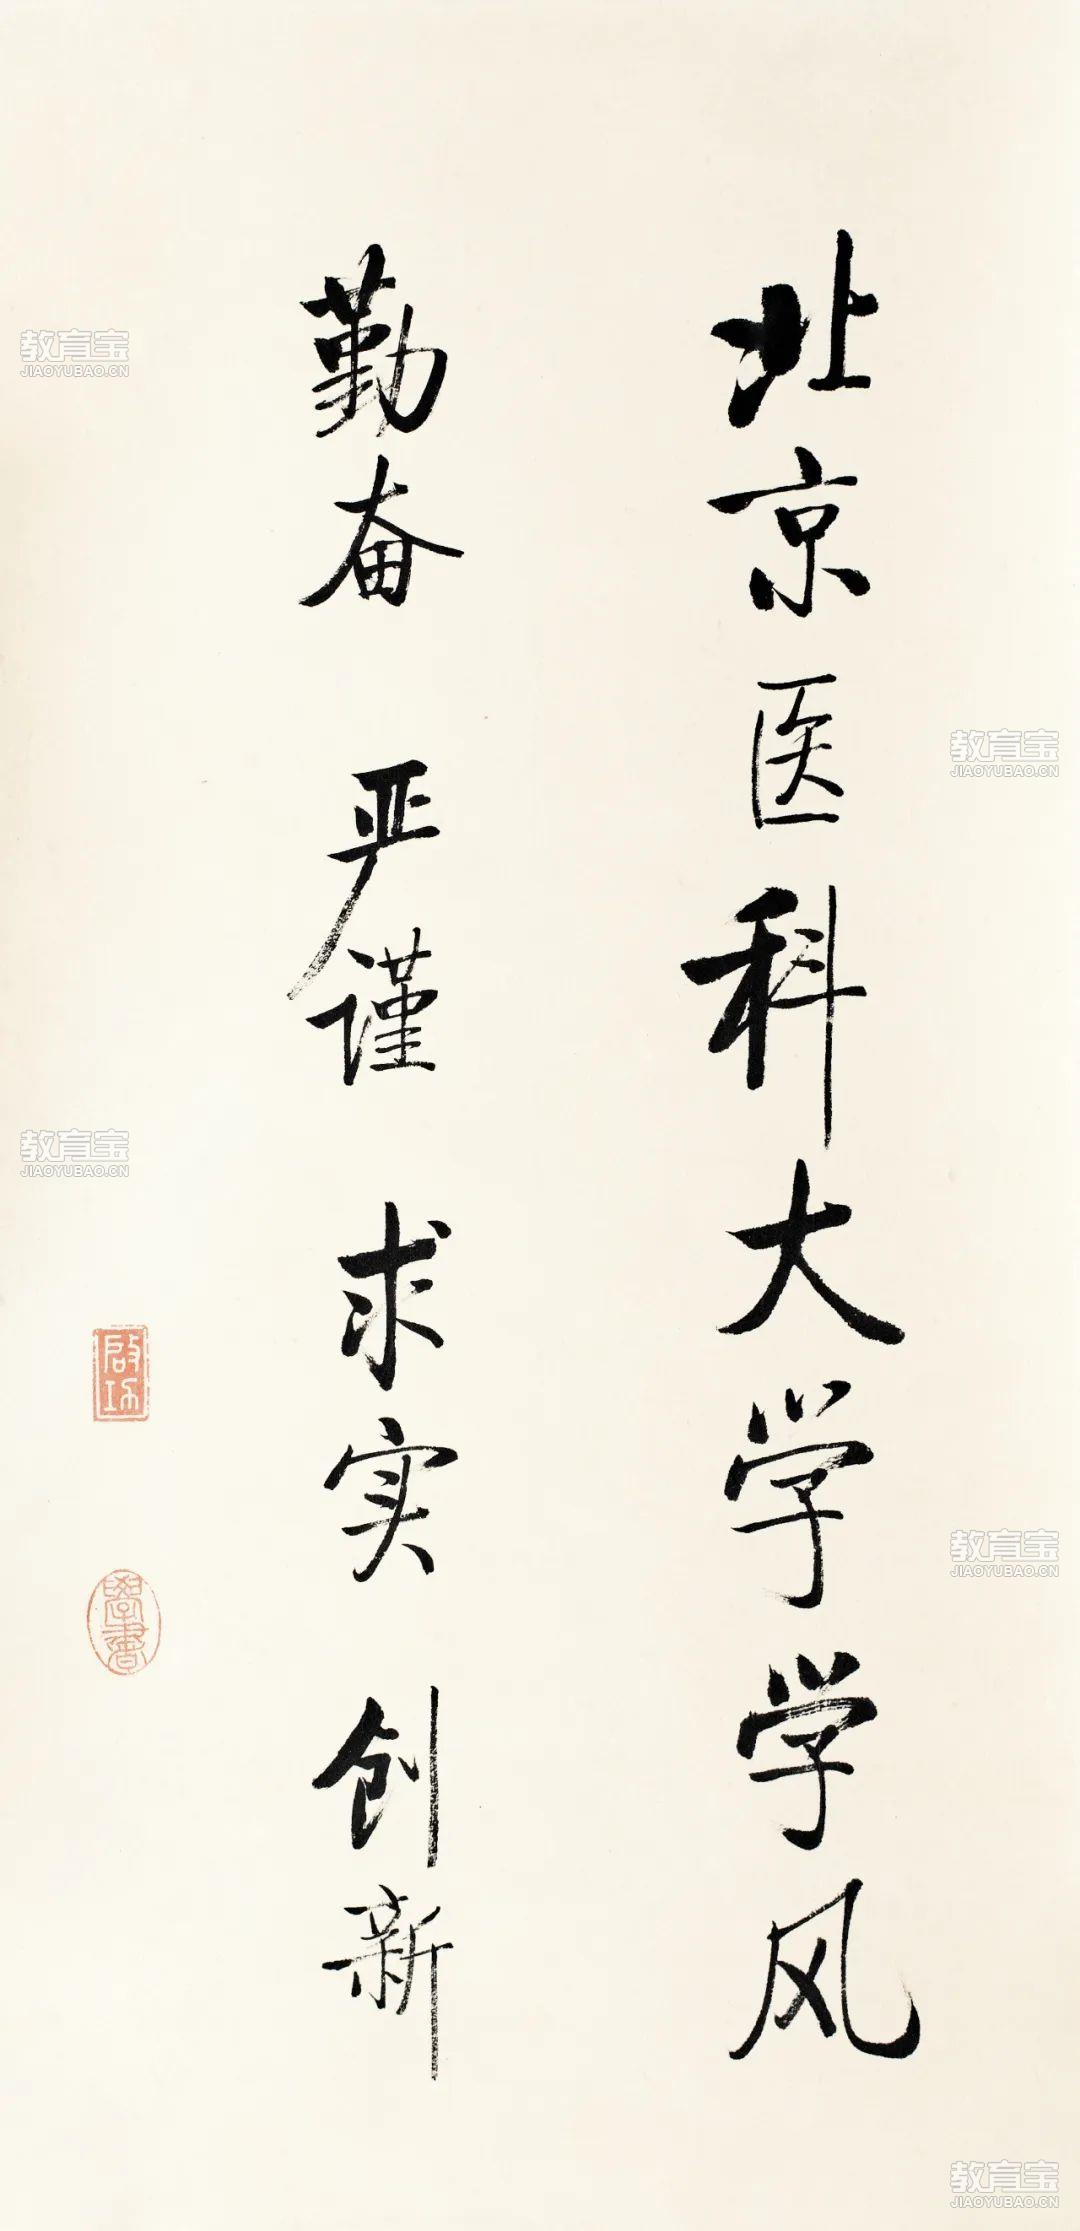 北京医科大学学风
勤奋 严谨 求实 创新
启功
学书
教育宝
JIAOYUBAO.CN
教育宝
JIAOYUBAO.CN
教育宝
JIAOYUBAO.CN
教育宝
JIAOYUBAO.CN
教育宝
JIAOYUBAO.CN